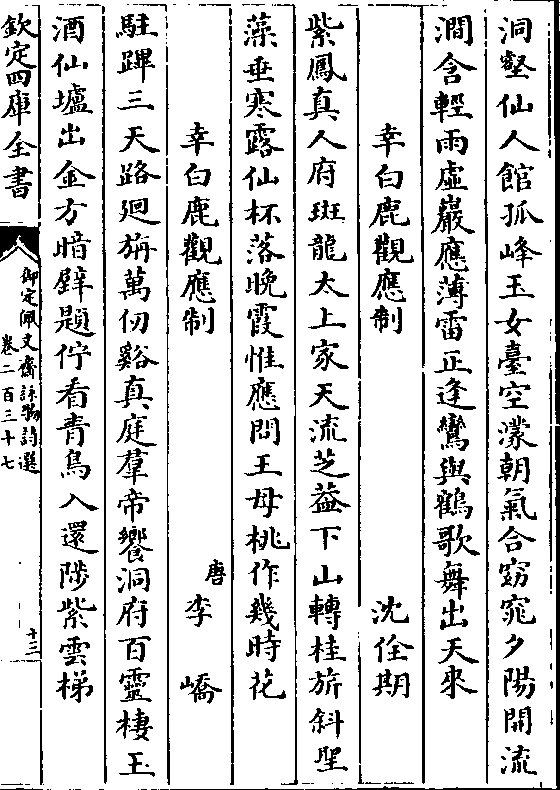 洞壑仙人館孤峰玉女臺空濛朝氣合窈窕夕陽開流
澗含輕雨虛巖應薄雷正逢鸞與鶴歌舞出天來
幸白鹿觀應制　沈佺期
紫鳳真人府斑龍太上家天流芝葢下山轉桂旂斜聖
藻垂寒露仙杯落晚霞惟應問王母桃作幾時花
幸白鹿觀應制　唐李嶠
駐蹕三天路廻旃萬仞谿真庭羣帝饗洞府百靈棲玉
酒仙壚出金方暗壁題佇看青鳥入還陟紫雲梯
欽定四庫全書
御定佩文齋詠物詩選
卷二百三十七
十三